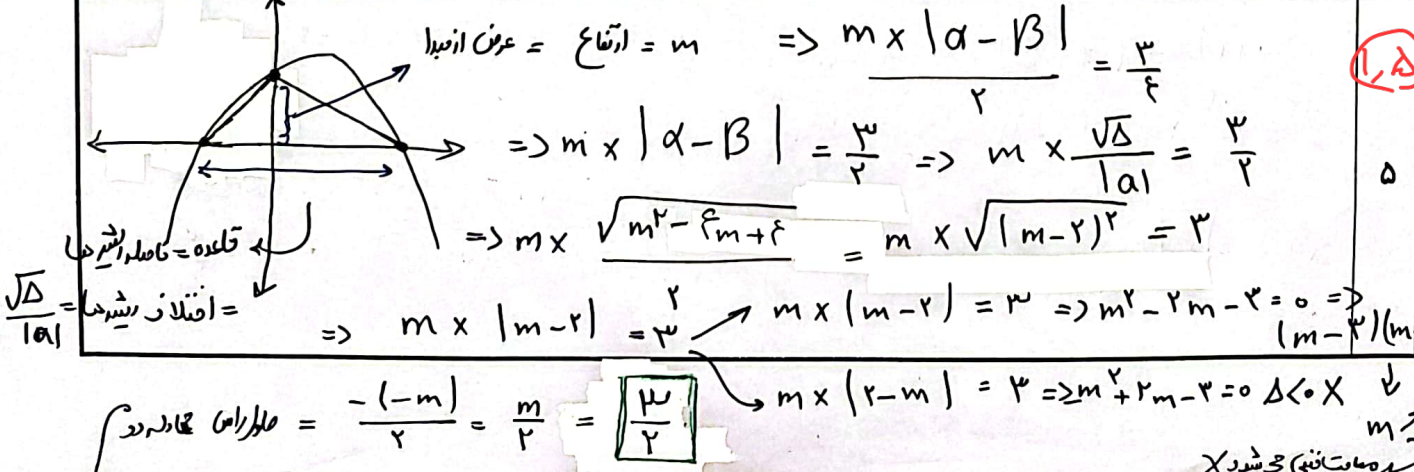 عرض از مبدا = ارتفاع = m => m × |α - β| / ۲ = ۳/۴
۱,۵
=> m × |α - β| = ۳/۲ => m × √Δ / |a| = ۳/۲
۵
قاعده = فاصله ریشه‌ها => m × √(m² - ۴m + ۴) / ۲ = m × √(m-۲)² = ۳
= اختلاف ریشه‌ها = √Δ / |a| => m × |m-۲| = ۳ m × (m-۲) = ۳ => m² - ۲m - ۳ = ۰ =>
(m-۳)(m
m × (۲-m) = ۳ => m² + ۲m - ۳ = ۰ Δ<۰ X
طول راس = -(-m) / ۲ = m/۲ = ۳/۲
m
منفی می شود X